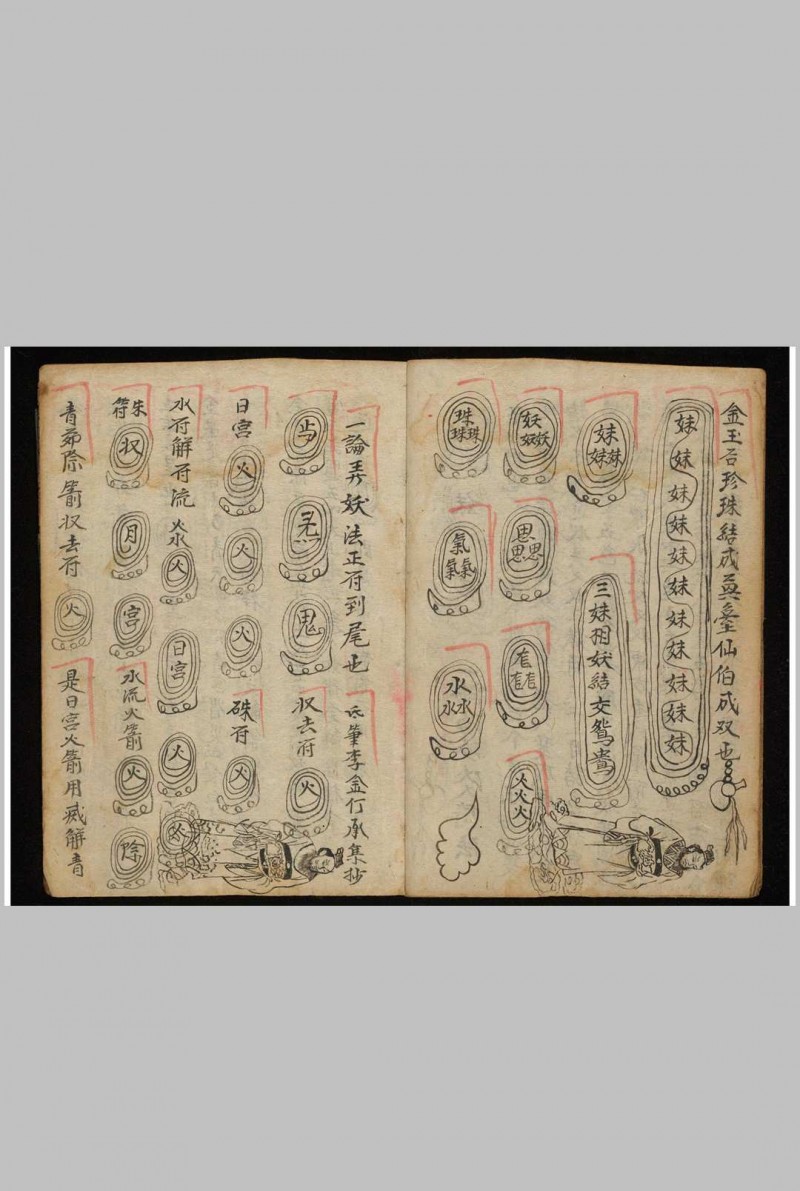 金玉吾珍珠結成英臺仙伯成双也
妹妹妹妹妹妹妹妹妹妹妹
妹妹妹
三妹相妖結交鴛鴦
妖妖妖
思思思
火火火
珠珠珠
氣氣氣
水水水
一論弄妖法正符到尾也
氏筆李金仃承集抄
鬼
収去符
火
日宮
火
火
火
硃符
火
水符解符流火水
火
日宮
火
火
朱符
収
月
宮
水流火箭
火
除
青茆除箭収去符
火
是日宮火箭用减解青